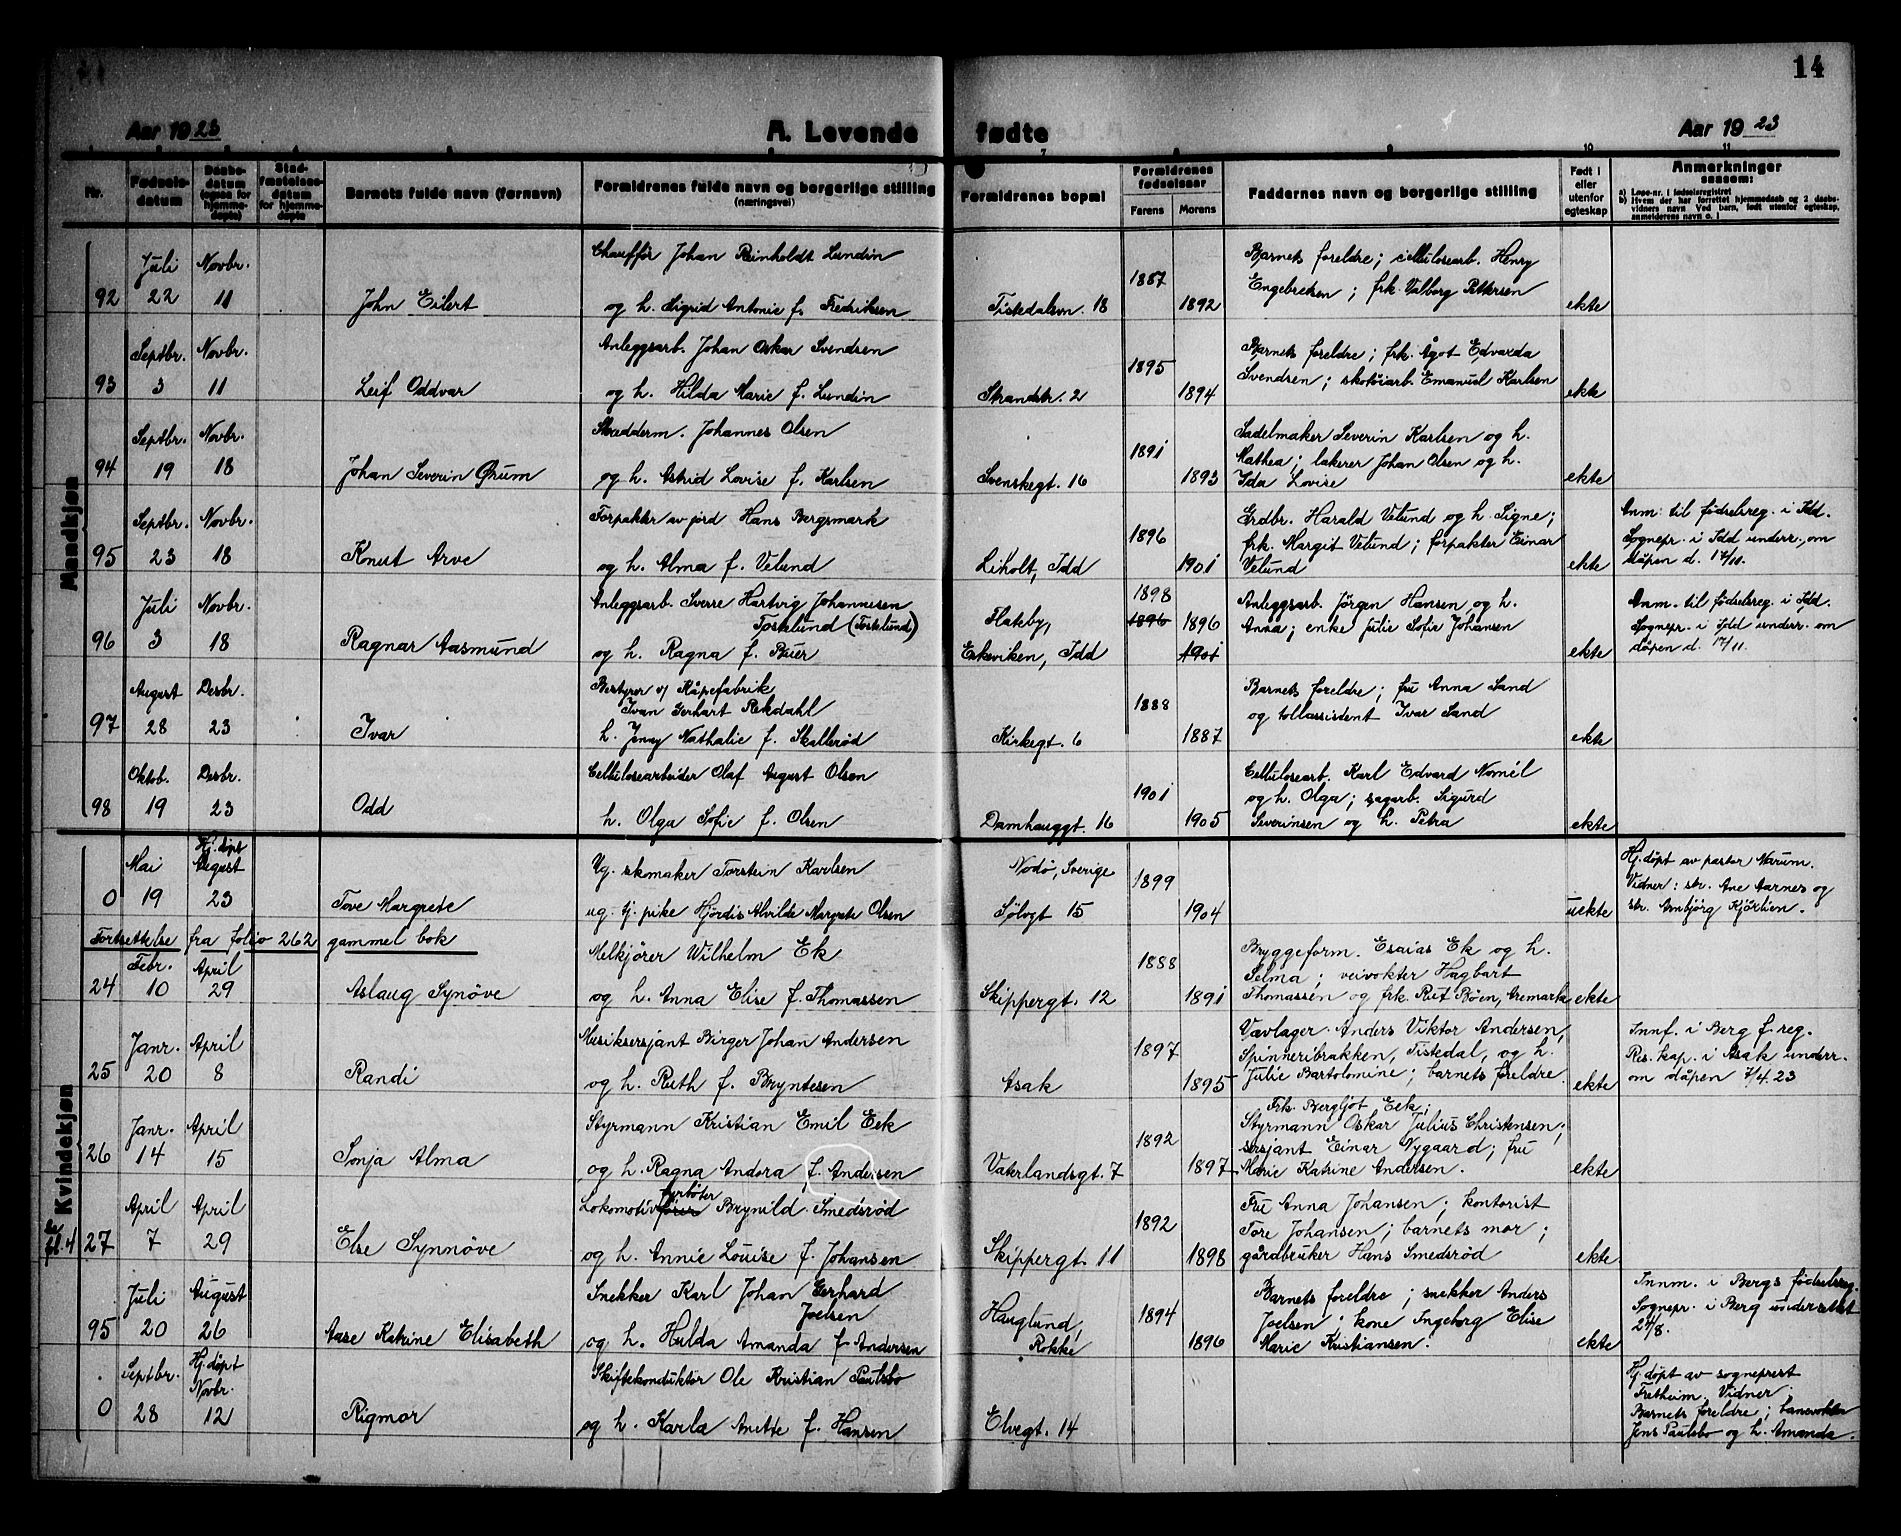 14
Aar 1923 A. Levende fødte Aar 1923
Nr.
Fødselsdatum
Daabsdatum (ogsaa for hjemmedøpte)
Stadfæstelsesdatum for hjemmedøpte
Barnets fulde navn (fornavn)
Forældrenes fulde navn og borgerlige stilling
(næringsvei)
Forældrenes bopæl
Forældrenes fødselsaar
Farens. Morens.
Faddernes navn og borgerlige stilling
Født i eller utenfor egteskap
Anmerkninger
saasom:
a) Løpe-nr. i fødselsregistret
b) Hvem der har forrettet hjemmedaab og 2 daabsvidners navn Ved barn, født utenfor egteskap, anmelderens navn o. l
Mandkjøn
Juli Novbr. Chauffør Johan Reinholdt Lundin 1887 Barnets foreldre; cellulosearb. Henry
92 22 11 John Eilert og h. Sigrid Antonie f. Fredriksen Tistedalsvn. 18 1892 Engebretsen; frk. Valborg Pettersen ekte
Septbr. Novbr. Anleggsarb. Johan Oskar Svendsen 1895 Barnets foreldre; frk. Ågot Edvarda
93 3 11 Leif Oddvar og h. Hilda Marie f. Lundin Strandstr. 2 1894 Svendsen; skotøiarb. Emanuel Karlsen ekte
Septbr. Novbr. Skredderm. Johannes Olsen 1891 Sadelmaker Severin Karlsen og h.
Mathea; lakerer Johan Olsen og h.
94 19 18 Johan Severin Ørum og h. Astrid Lovise f. Karlsen Svenskegt. 16 1893 Ida Lovise ekte
Septbr. Novbr. Forpakter av jord Hans Bergsmark 1896 Grdbr. Harald Velund og h. Signe; Anm. til fødselsreg. i Idd.
frk. Margit Velund; forpakter Einar Sognepr. i Idd underr. om
95 23 18 Knut Arve og h. Alma f. Velund Liholt, Idd 1901 Velund ekte dåpen d. 17/11.
Juli Novbr. Anleggsarb. Sverre Hartvig Johannesen 1898 Anleggsarb. Jörgen Hansen og h. Anm. til fødselsreg. i Idd.
Tosklund (Tosklund) Flateby, 1896 1896 Anna; enke Julie Sofie Johansen Sognepr. i Idd underr. om
96 3 18 Ragnar Aasmund og h. Ragna f. Buer Eskeviken, Idd 1901 ekte dåpen d. 17/11.
August Desbr. Bestyrer v/ Kåpefabrik Barnets foreldre; fru Anna Sand
Ivan Gerhart Rekdahl 1888 og tollassistent Ivar Sand
97 28 23 Ivar h. Jenny Nathalie f. Skallerød Kirkegt. 6 1887 ekte
Oktob. Desbr. Cellulosearbeider Olaf August Olsen 1901 Cellulosearb. Karl Edvard Nomél
og h. Olga; sagarb. Sigurd
98 19 23 Odd h. Olga Sofie f. Olsen Damhauggt. 16 1905 Severinsen og h. Petra ekte
Kvindekjøn
Hj. døpt
Mai August Ug. skomaker Torstein Karlsen Nodø, Sverige 1899 Hj. døpt av pastor Narum.
Vidner: str. Ane Aarnes og
0 19 23 Tove Margrete ug. tj. pike Hjördis Alvilde Margrete Olsen Sølvgt 15 1904 uekte str. Ambjörg Kjöktien.
Fortsettelse fra folio 262 gammel bok
Febr. April Melkjører Wilhelm Ek 1888 Bryggeform. Esaias Ek og h.
Selma; veivokter Hagbart
24 10 29 Aslaug Synøve og h. Anna Elise f. Thomassen Skippergt. 12 1891 Thomassen og frk. Rut Bøen, Aremark ekte
Janr. April Musiksersjant Birger Johan Andersen 1897 Vævlager Anders Viktor Andersen, Innf. i Berg f. reg.
Spinneribrakken, Tistedal, og h. Res. kap. i Asak underr.
25 20 8 Randi og h. Ruth f. Bryntesen Asak 1895 Julie Bartolomine; barnets foreldre. ekte om dåpen 7/4. 23
Frk. Bergljot Eek;
Janr. April Styrmann Kristian Emil Eek 1892 Styrmann Oskar Julius Christensen;
sersjant Einar Nygaard; fru
26 14 15 Sonja Alma og h. Ragna Andora f. Andersen Vaterlandsgt. 7 1897 Marie Katrine Andersen. ekte
fyrbøter
April April Lokomotivfører Brynild Smedsrød 1892 Fru Anna Johansen; kontorist
Tore Johansen; barnets mor;
27 7 29 Else Synnöve og h. Annie Louise f. Johansen Skippergt. 11 1898 gårdbruker Hans Smedsrød ekte
Juli August Snekker Karl Johan Gerhard 1894 Barnets foreldre; snekker Anders Innm. i Bergs fødselsreg.
Joelsen Hauglund, Joelsen; kone Ingeborg Elise Sognepr. i Berg underrettet
95 20 26 Aase Katrine Elisabeth og h. Hulda Amanda f. Andersen Rokke 1896 Marie Kristiansen. ekte 24/8.
Septbr. Hj. døpt Skiftekonduktör Ole Kristian Paulsbo Hj. døpt av sogneprest
Novbr. Fretheim. Vidner:
Barnets foreldre; banevokter
0 28 12 Rigmor og h. Karla Anette f. Hansen Elvegt. 14 Jens Paulsbo og h. Amanda.